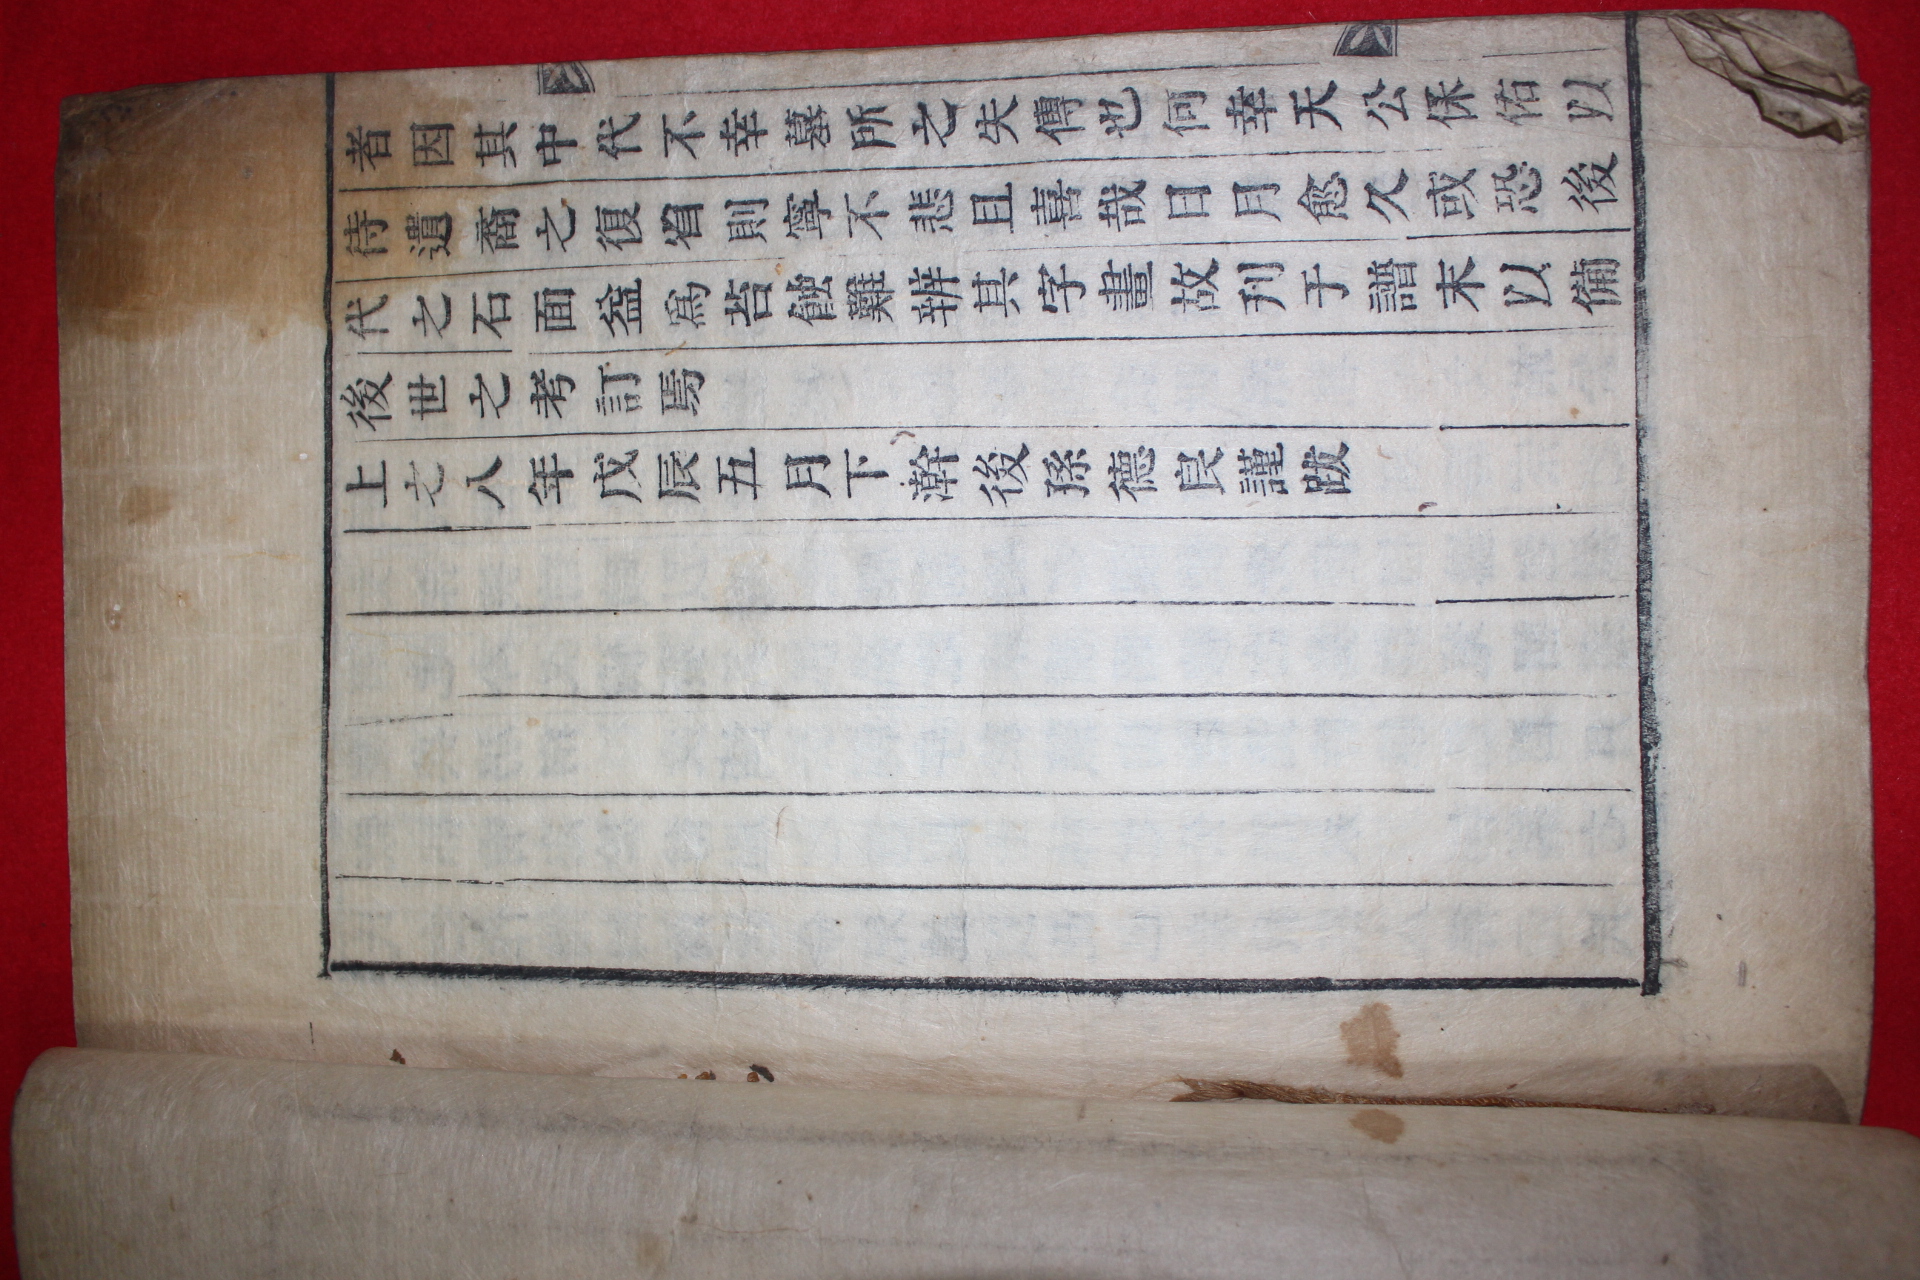 者因其中代不幸墓所之失傳也何幸天公保佑以
待遺裔之復省則寧不悲且喜哉日月愈久或恐後
代之石面益爲苔蝕難辨其字畫故刊于譜末以備
後世之考訂焉
上之八年戊辰五月下澣後孫德良謹跋